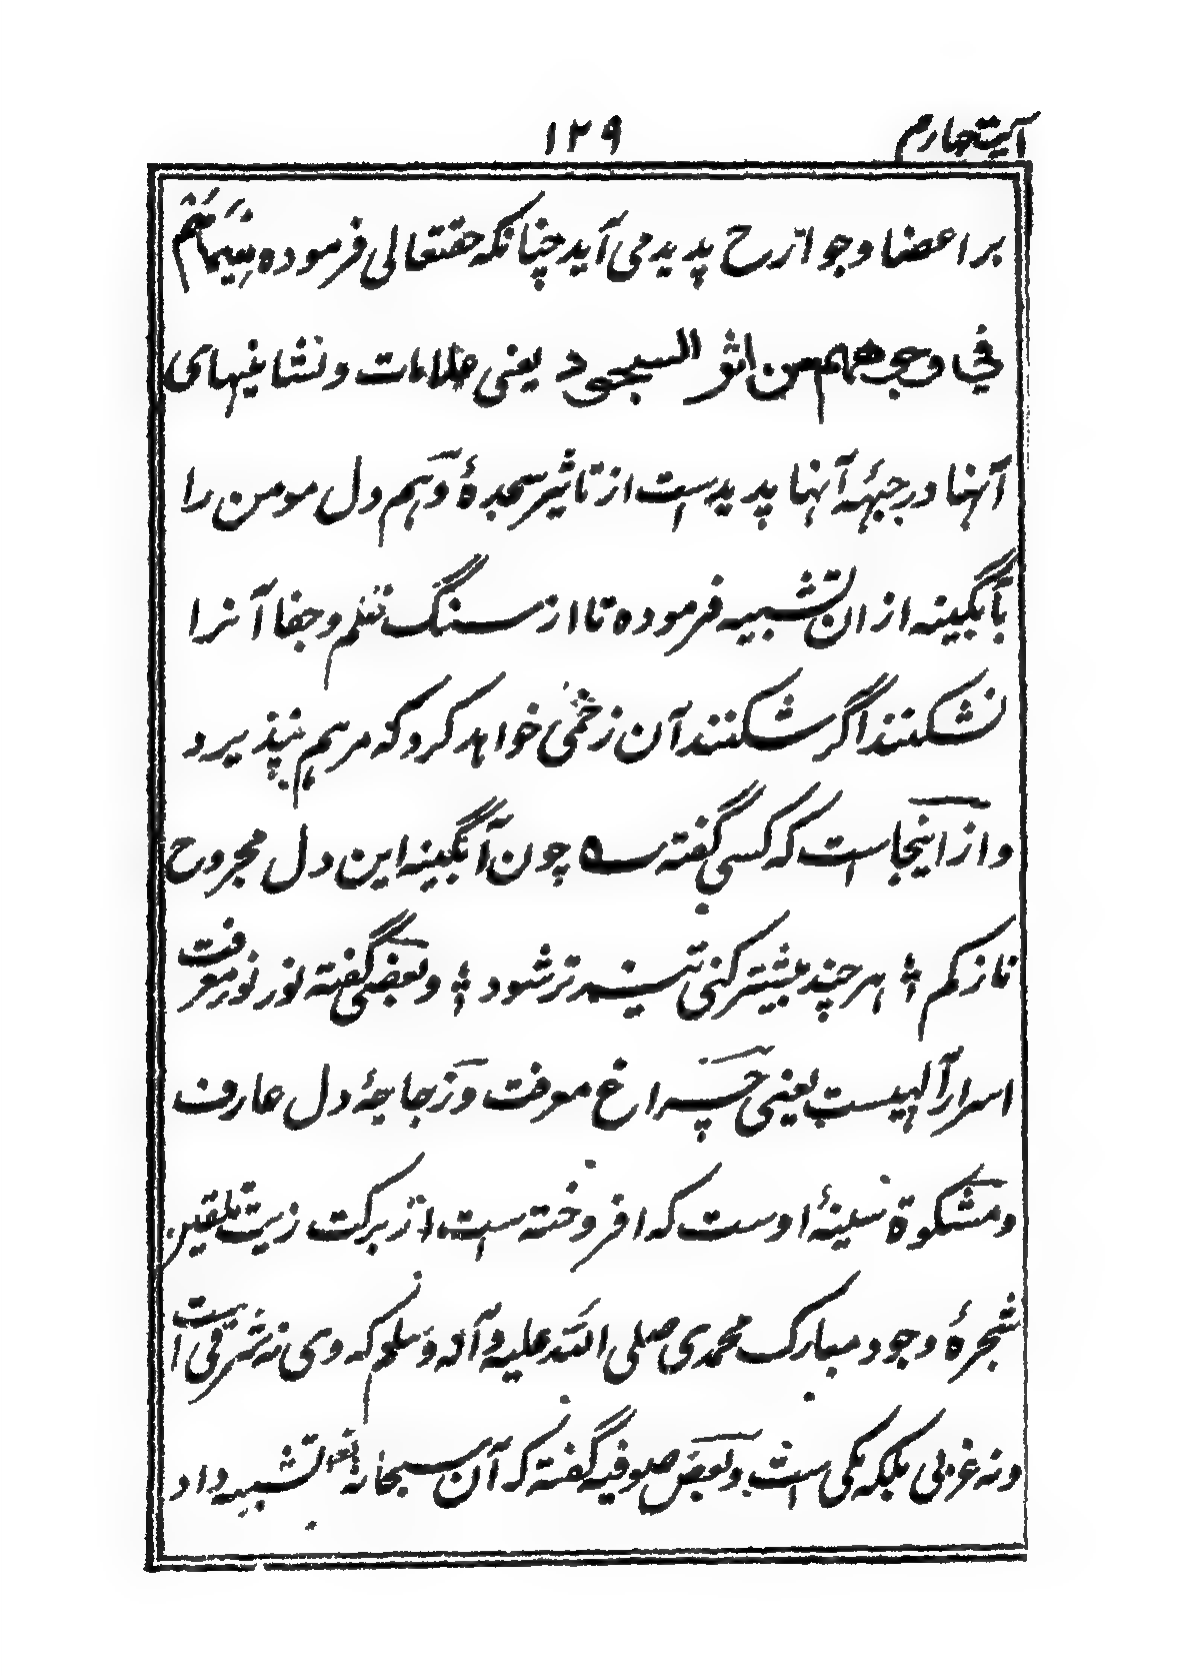 آیت چهارم
۱۲۹
بر اعضا و جوارح پدید می آید چنانکه حقتعالی فرموده سِیْمَاهُمْ
فی وجوههم من اثر السجود یعنی علامات و نشانیهای
آنها در جبههٔ آنها پدیدست از تاثیر سجدهٔ وهم دل مومن را
بآبگینه ازان تشبیه فرموده تا از سنگ تظلم و جفا آنرا
نشکنند اگر شکنند آن زخمی خواهد کرد که مرهم نپذیرد
و ازاینجاست که کسی گفته ؎ چون آبگینه این دل مجروح
نازکم ؛ هر چند بیشتر کنی تیز تر شود ؛ و بعضی گفته نور نور معرفت
اسرار الهیست یعنی چراغ معرفت و زجاجهٔ دل عارف
و مشکوة سینهٔ اوست که افروخته ست از برکت زیت تلقین
شجرهٔ وجود مبارک محمدی صلی الله علیه وآله وسلم که وی نه شرقی است
ونه غربی بلکه مکی است و بعض صوفیه گفته که آن سبحانه تشبیه داد